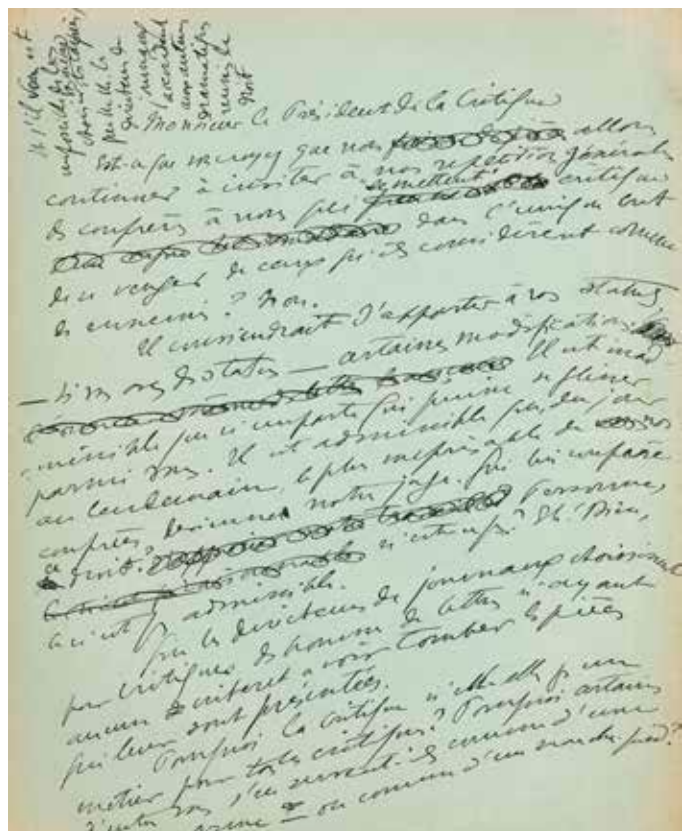 et s'il vous est
impossible de les
choisir
parler de la
directeurs de
journaux
accordent
aux auteurs
dramatiques
Monsieur le Président de la Critique
Est-ce que vous croyez que nous allons
continuer à inviter à nos répétitions générales
des confrères à nous qui se mettent critique
dans l'unique but
de se venger de ceux qu'ils considèrent comme
des ennemis ? Non.
Il conviendrait d'apporter à vos statuts
— si vous avez des statuts — certaines modifications.
Il est inad-
missible que n'importe qui puisse se glisser
parmi vous. Il est admissible que, du jour
au lendemain, le plus méprisable de nos
confrères, devienne notre juge. Qui lui confère
ce droit ? Personne,
n'est-ce pas ? Eh ! bien,
ceci est pas admissible.
Que les directeurs de journaux choisissent
pour critiques des hommes de lettres n'ayant
aucun intérêt à voir tomber les pièces
qui leur sont présentées.
Pourquoi la critique n'est-elle pas un
métier pour tous les critiques ? Pourquoi certains
d'entre vous s'en servent-ils comme d'une
arme ou comme d'un marche-pied ?